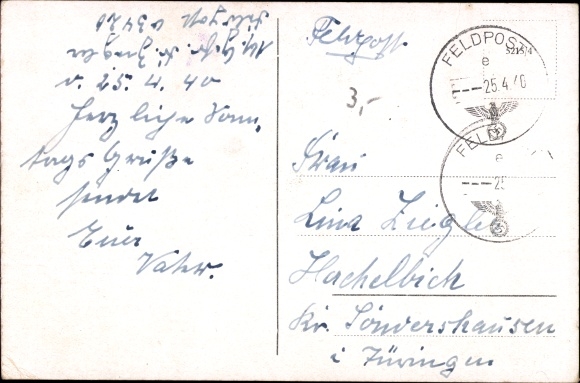 v. 25. 4. 40
Herzliche Sonn,
tags Grüße
sendet
Euer
Vater.
Feldpost
3,-
FELDPOST
5215/4
e
---25.4.40
FELD
e
--- 25
Frau
Lina Ziegler
Hachelbich
Kr. Sondershausen
i Türingen